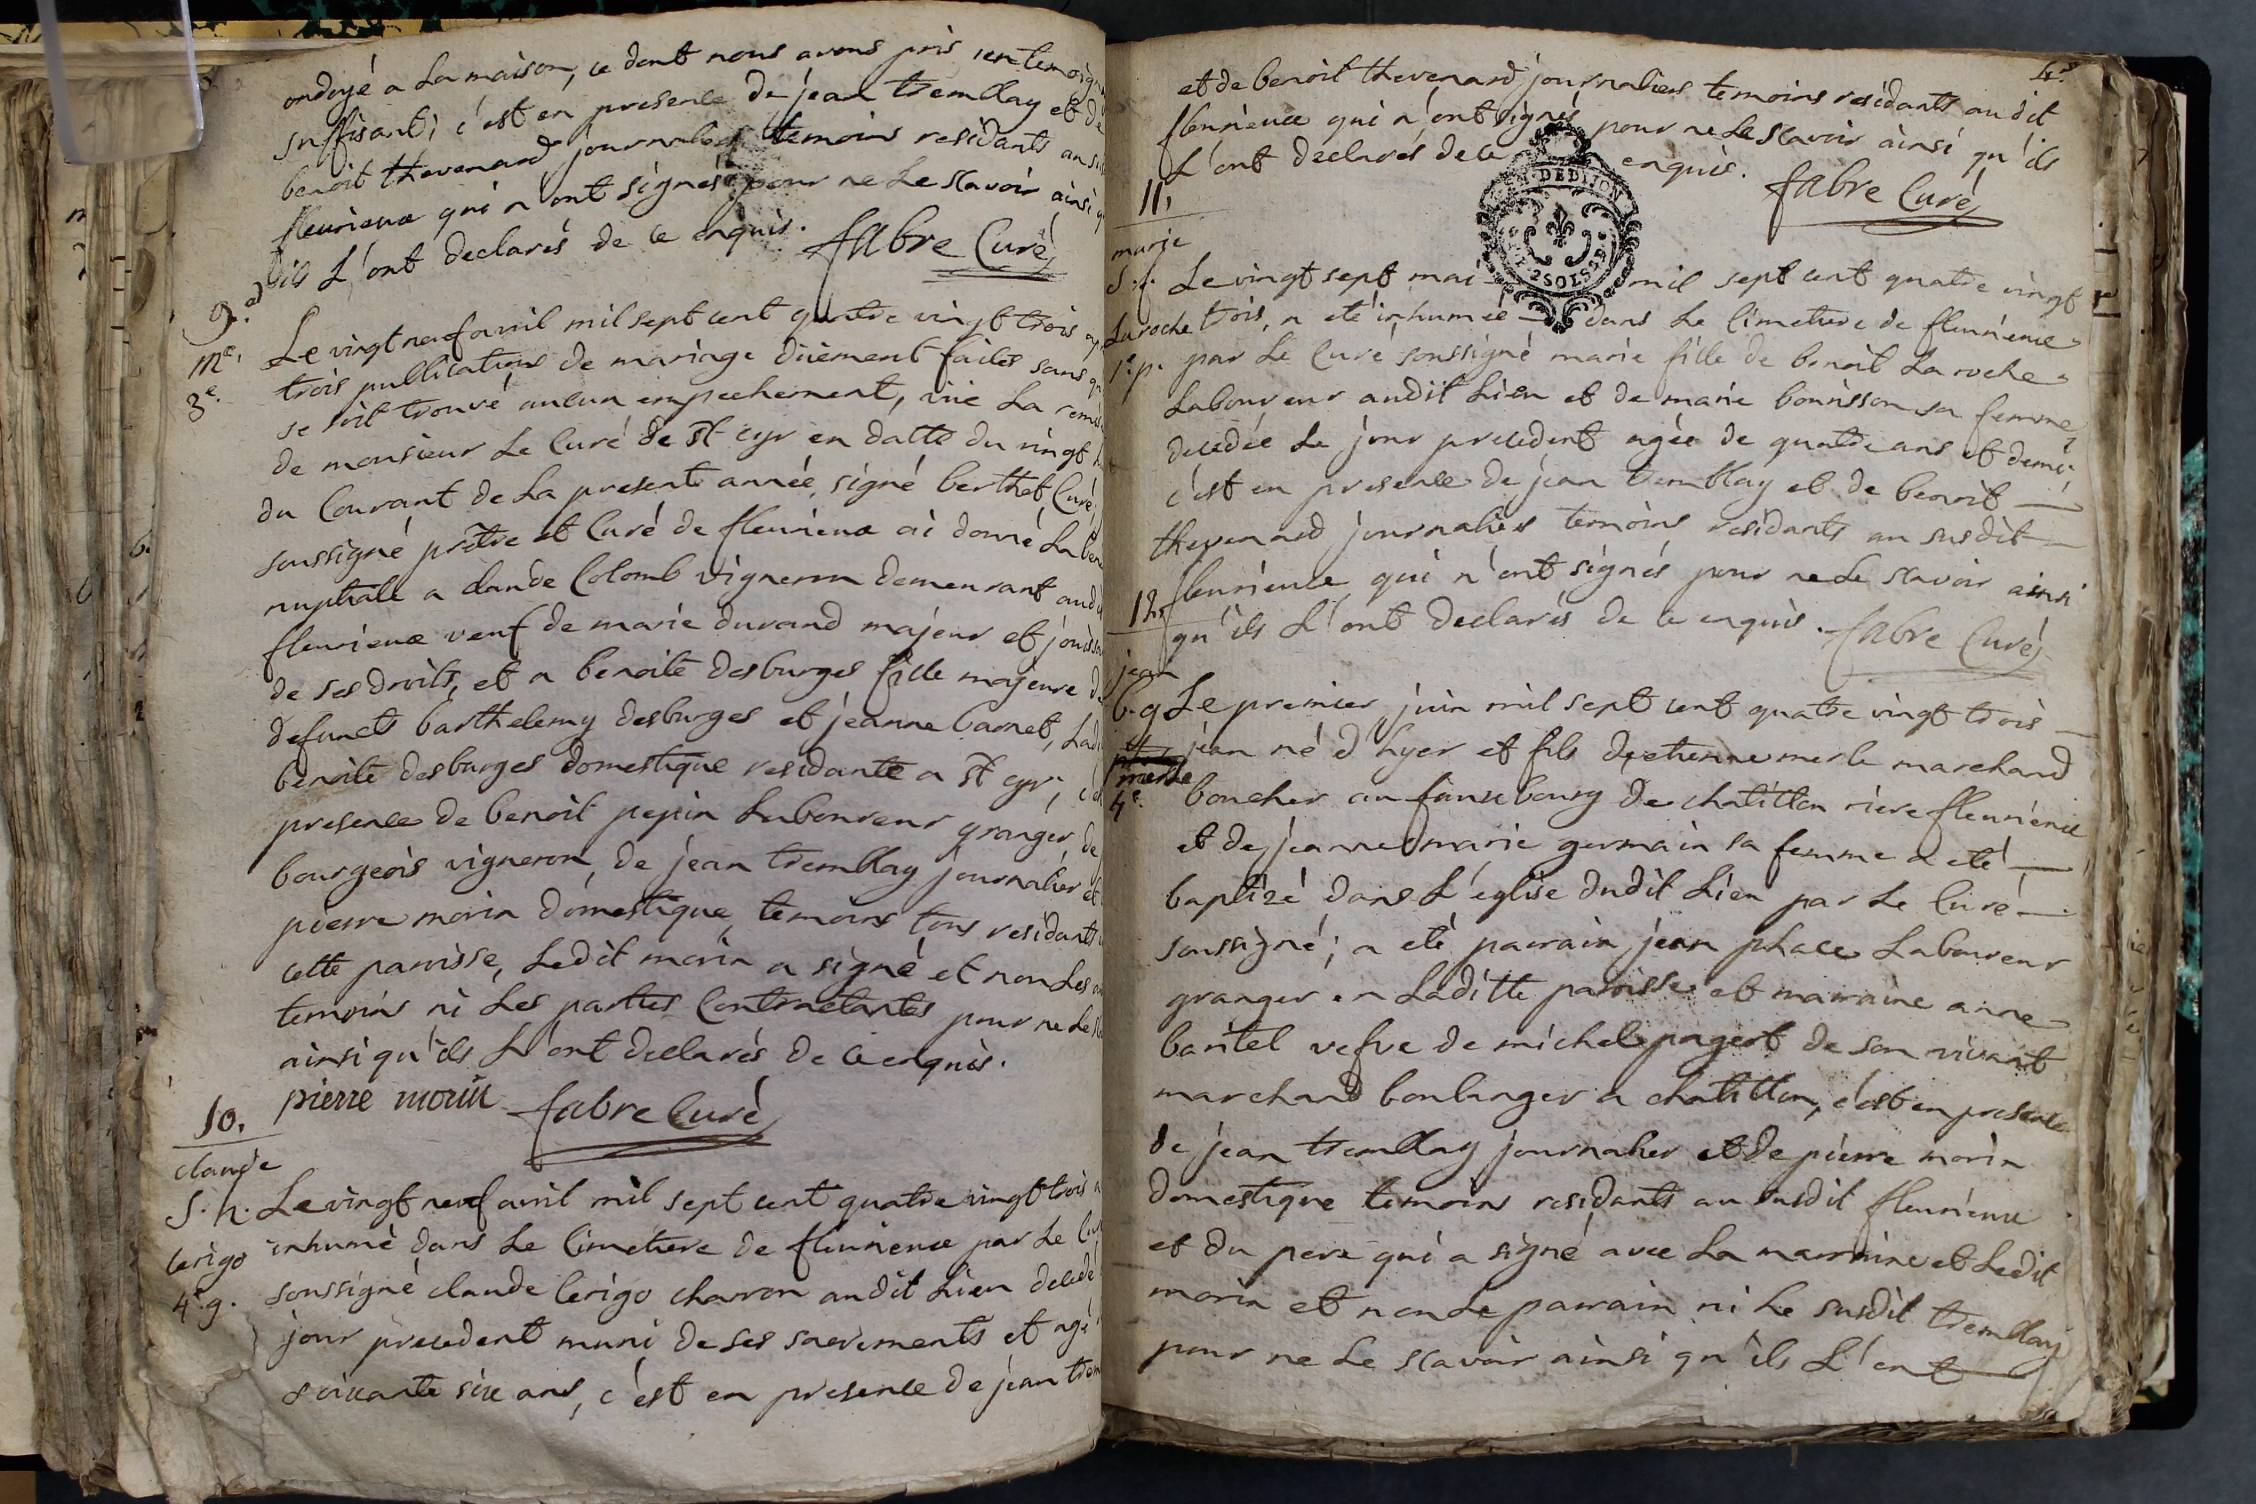 ondoyé a La maison, ce dont nous avons pris
suffisant; c'est en presence de jean tremblay et de
benoit thevenard journaliers temoins residants au
fleurieux qui n'ont signés pour ne Le sçavoir ainsi
ils L'ont declarés de ce enquis. fabre Curé
9.
me.
3e.
Le vingt neuf avril mil sept cent quatre vingt trois
trois publications de mariage düement faites sans
se soit trouvé aucun empechement, viie La
de monsieur Le Curé de St cyr en datte du vingt
du Courant de La presente année, signé berthet Curé,
soussigné prêtre et Curé de fleurieux ai donné La
nuptiale a claude Colomb vigneron demeurant
fleurieux veuf de marie durand majeur et
de ses droits, et a benoite desburges fille majeure
defuncts barthelemy desburges et jeanne Carnet,
benoite desburges domestique residante a St cyr,
presence de benoit pepin Laboureur granger, de
bourgeois vigneron, de jean tremblay journalier et
pierre morin domestique, temoins tous residants
cette paroisse, Ledit morin a signé et non Les
temoins ni Les parties Contractantes pour ne Le
ainsi qu'ils L'ont declarés de ce enquis.
pierre morin fabre Curé
10.
claude
S. h.
Cerigo
4e. g.
Le vingt neuf avril mil sept cent quatre vingt trois
inhumé dans Le Cimetiere de fleurieux par Le
soussigné claude Cerigo charron audit Lieu decedé
jour precedent muni de ses sacrements et agé
soixante six ans, c'est en presence de jean
et de benoit thevenard journaliers temoins residants audit
fleurieux qui n'ont signés pour ne Le sçavoir ainsi qu'ils
L'ont declarés de ce enquis. fabre Curé
DE DIJON
2 SOLS
11.
marie
S. f.
Laroche
1e. p.
Le vingt sept mai mil sept cent quatre vingt
trois, a eté inhumée dans Le Cimetiere de fleurieux
par Le Curé soussigné marie fille de benoit La roche
Laboureur audit Lieu et de marie bonisson sa femme,
decedée Le jour precedent agée de quatre ans et demi;
c'est en presence de jean tremblay et de benoit
thevenard journaliers temoins residants au susdit
fleurieux, qui n'ont signés pour ne Le sçavoir ainsi
qu'ils L'ont declarés de ce enquis. fabre Curé
12.
jean
b. g
merle
4e.
Le premier juin mil sept cent quatre vingt trois
jean né d'hyer et fils d'etienne merle marchand
boucher au fauxbourg de chatillon riere fleurieux
et de jeanne marie germain sa femme a eté
baptizé dans L'église dudit Lieu par Le Curé
soussigné; a eté parrain jean place Laboureur
granger en Laditte paroisse et marraine anne
baritel vefve de michel pageot de son vivant
marchand boulanger a chatillon, c'est en presence
de jean tremblay journalier et de pierre morin
domestique temoins residants au susdit fleurieux
et du pere qui a signé avec La marraine et Ledit
morin et non Le parrain ni Le susdit tremblay
pour ne Le sçavoir ainsi qu'ils L'ont